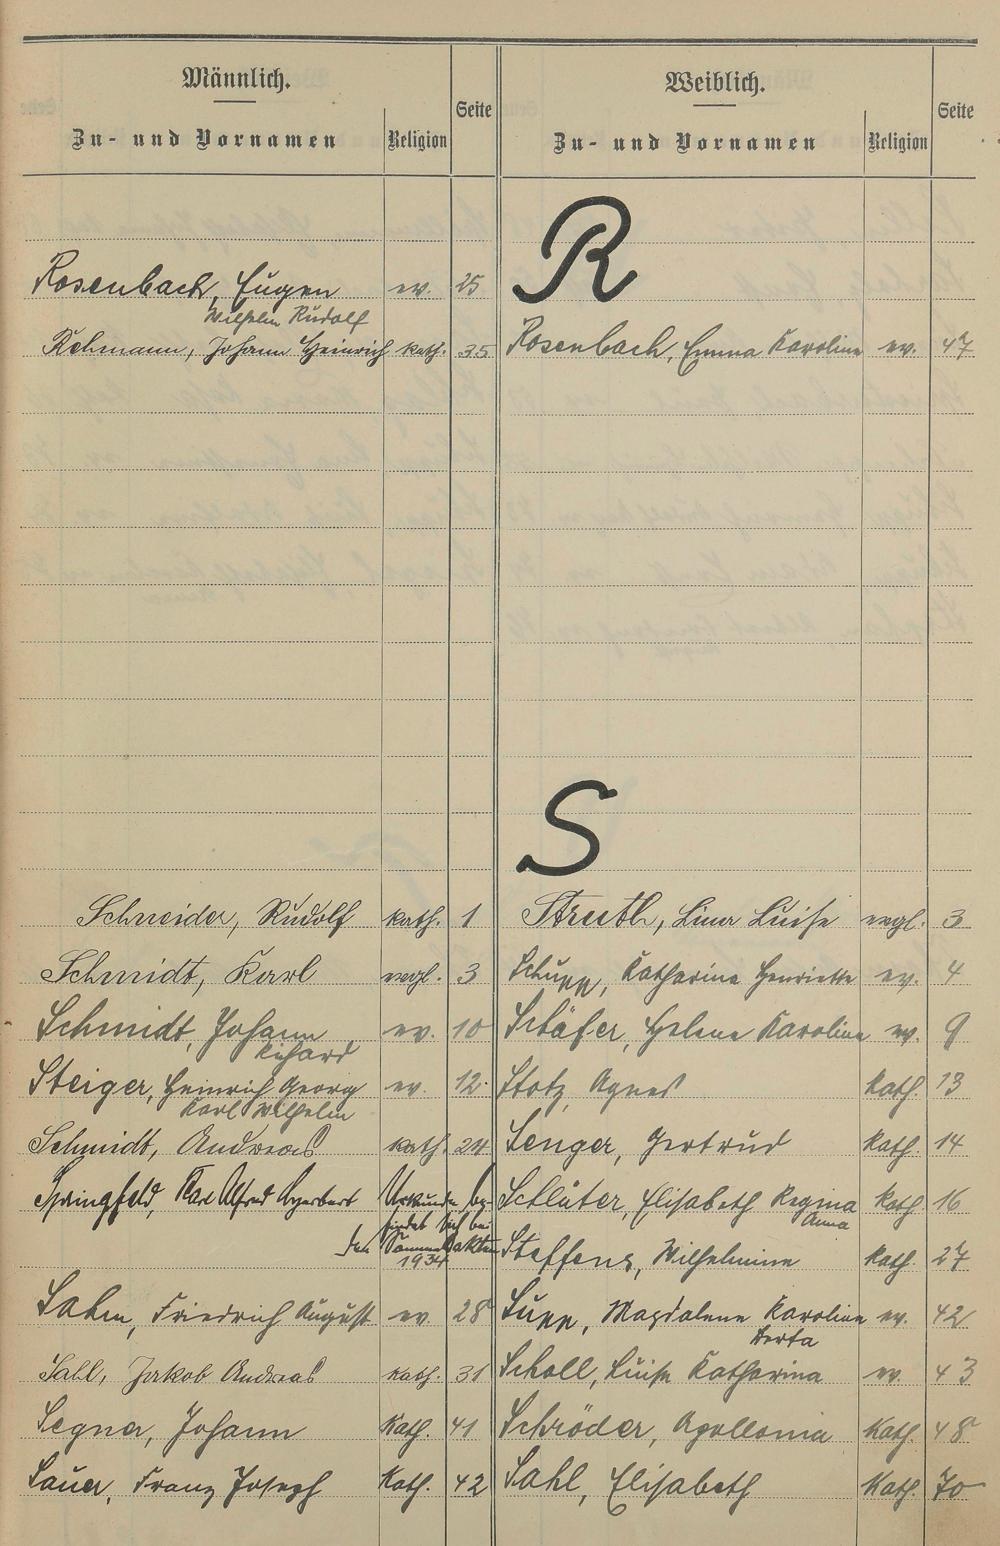 Männlich.
Zu- und Vornamen Religion Seite
Rosenbach, Eugen ev. 25
Wilhelm Rudolf
Rehmann, Johann Heinrich kath. 35
Schneider, Rudolf kath. 1
Schmidt, Karl evgl. 3
Schmidt, Johann ev. 10
Richard
Steiger, Heinrich Georg ev. 12.
Karl Wilhelm
Schmidt, Andreas kath. 24
Springfeld, Karl Alfred Urkunde be-
findet sich bei
den Sammelakten
1934
Sahm, Friedrich August ev. 28
Sahl, Jakob Andreas kath. 31
Segner, Johann Kath. 41
Sauer, Franz Joseph Kath. 42
Weiblich.
Zu- und Vornamen Religion Seite
R
Rosenbach, Emma Karoline ev. 47
S
Struth, Lina Luise evgl. 3
Schupp, Katharina Henriette ev. 4
Schäfer, Helene Karoline ev. 9
Stotz, Agnes kath. 13
Senger, Gertrud kath. 14
Schlüter, Elisabeth Regina kath. 16
Anna
Steffens, Wilhelmine kath. 27
Supp, Magdalene Karoline ev. 42
Berta
Scholl, Luise Katharina ev. 43
Schröder, Apollonia Kath. 48
Sahl, Elisabeth Kath. 70